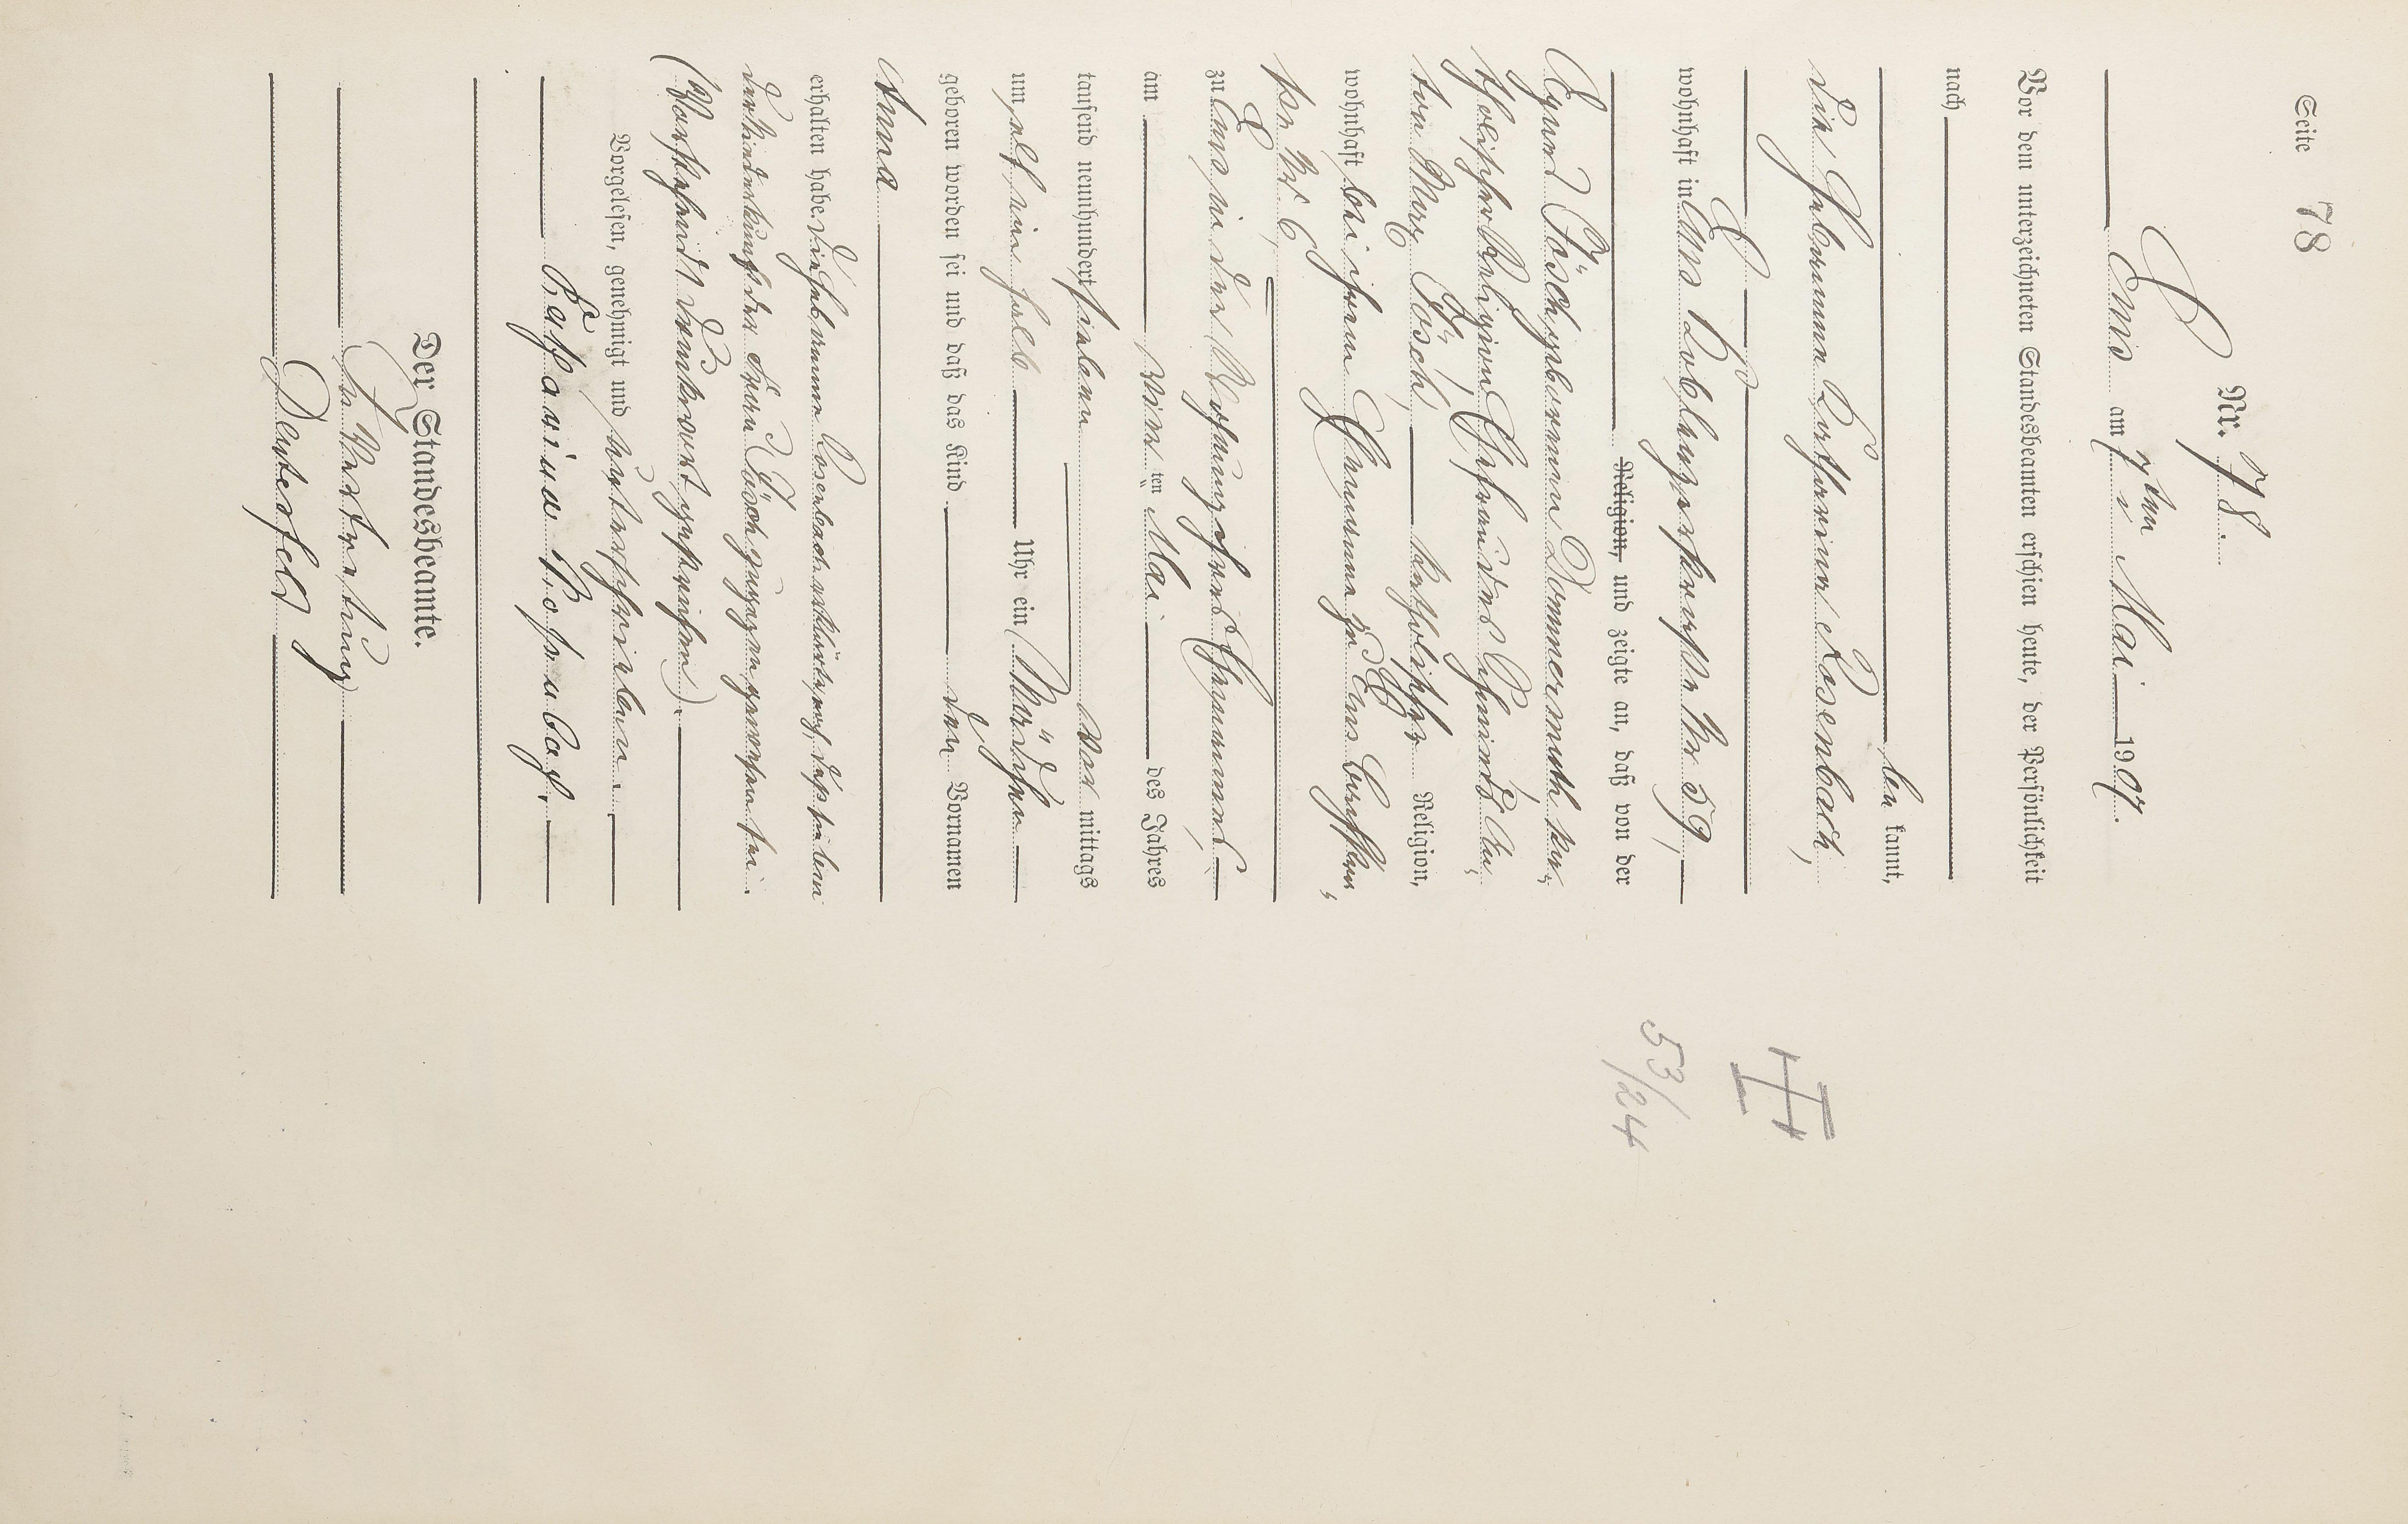 Seite 78
Nr. 78.
Ems am 7ten Mai 1907.
Vor dem unterzeichneten Standesbeamten erschien heute, der Persönlichkeit
nach
be kannt,
die Hebamme Katharina Rosenbach,
wohnhaft in Ems, Coblenzerstraße Nr 59,
Religion, und zeigte an, daß von der
Lösch geborenen Dommermuth, ka„
tholischer Religion, Ehefrau des
Lösch, katholischer Religion,
wohnhaft bei ihrem Ehemanne zu Ems
Nr 6,
zu Ems in der Wohnung ihres Ehemannes,
am vier ten Mai des Jahres
tausend neunhundert sieben Vor mittags
um elf ein halb Uhr ein Mädchen
geboren worden sei und daß das Kind den Vornamen
Anna
erhalten habe. Die Hebamme Rosenbach erklärte noch, daß sie bei
der Niederkunft der Frau Lösch zugegen gewesen sei.
(Vorstehend Druckwort gestrichen).
Vorgelesen, genehmigt und unterschrieben.
Katharina Rosenbach.
Der Standesbeamte.
In Vertretung
Deutesfeld
II
53/24